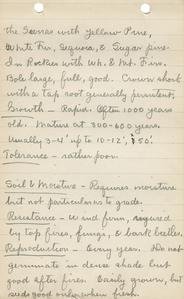 the Sierras with Yellow Pine,
White Fir, Sequoia, & Sugar pine.
In Rockies with Wh. & Mt. Firs.
Bole large, full, good. Crown short
with a tap root generally persistent.
Growth - Rapid. Often 1000 years
old. Mature at 300-600 years.
Usually 3-4' up to 10-12', 250'.
Tolerance - rather poor.
Soil & Moisture - Requires moisture
but not particular as to grade.
Resistance - Windfirm, injured
by top fires, fungi, & bark beetles.
Reproduction - Every year. Do not
germinate in dense shade but
good after fires. Easily grown, but
seeds good only when fresh.